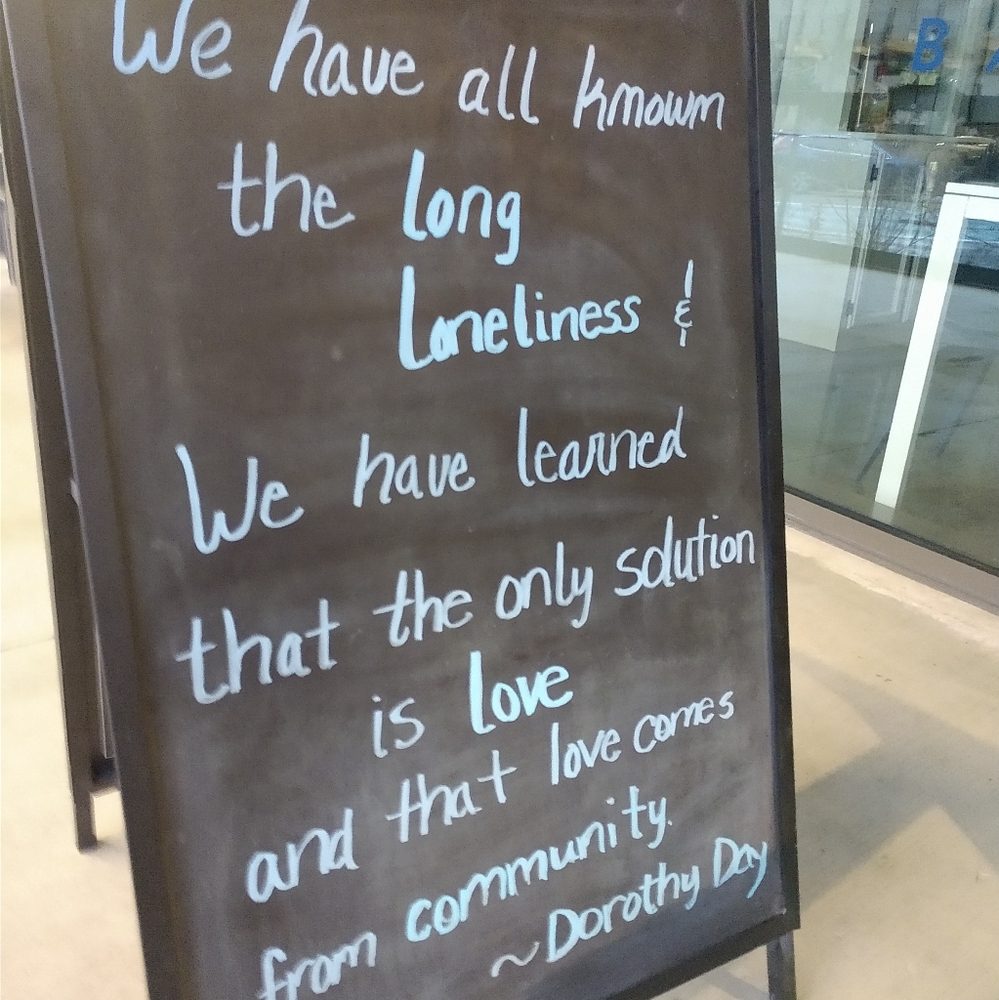 We have all known
the long
Loneliness &
We have learned
that the only solution
is love
and that love comes
from community.
~Dorothy Day
B